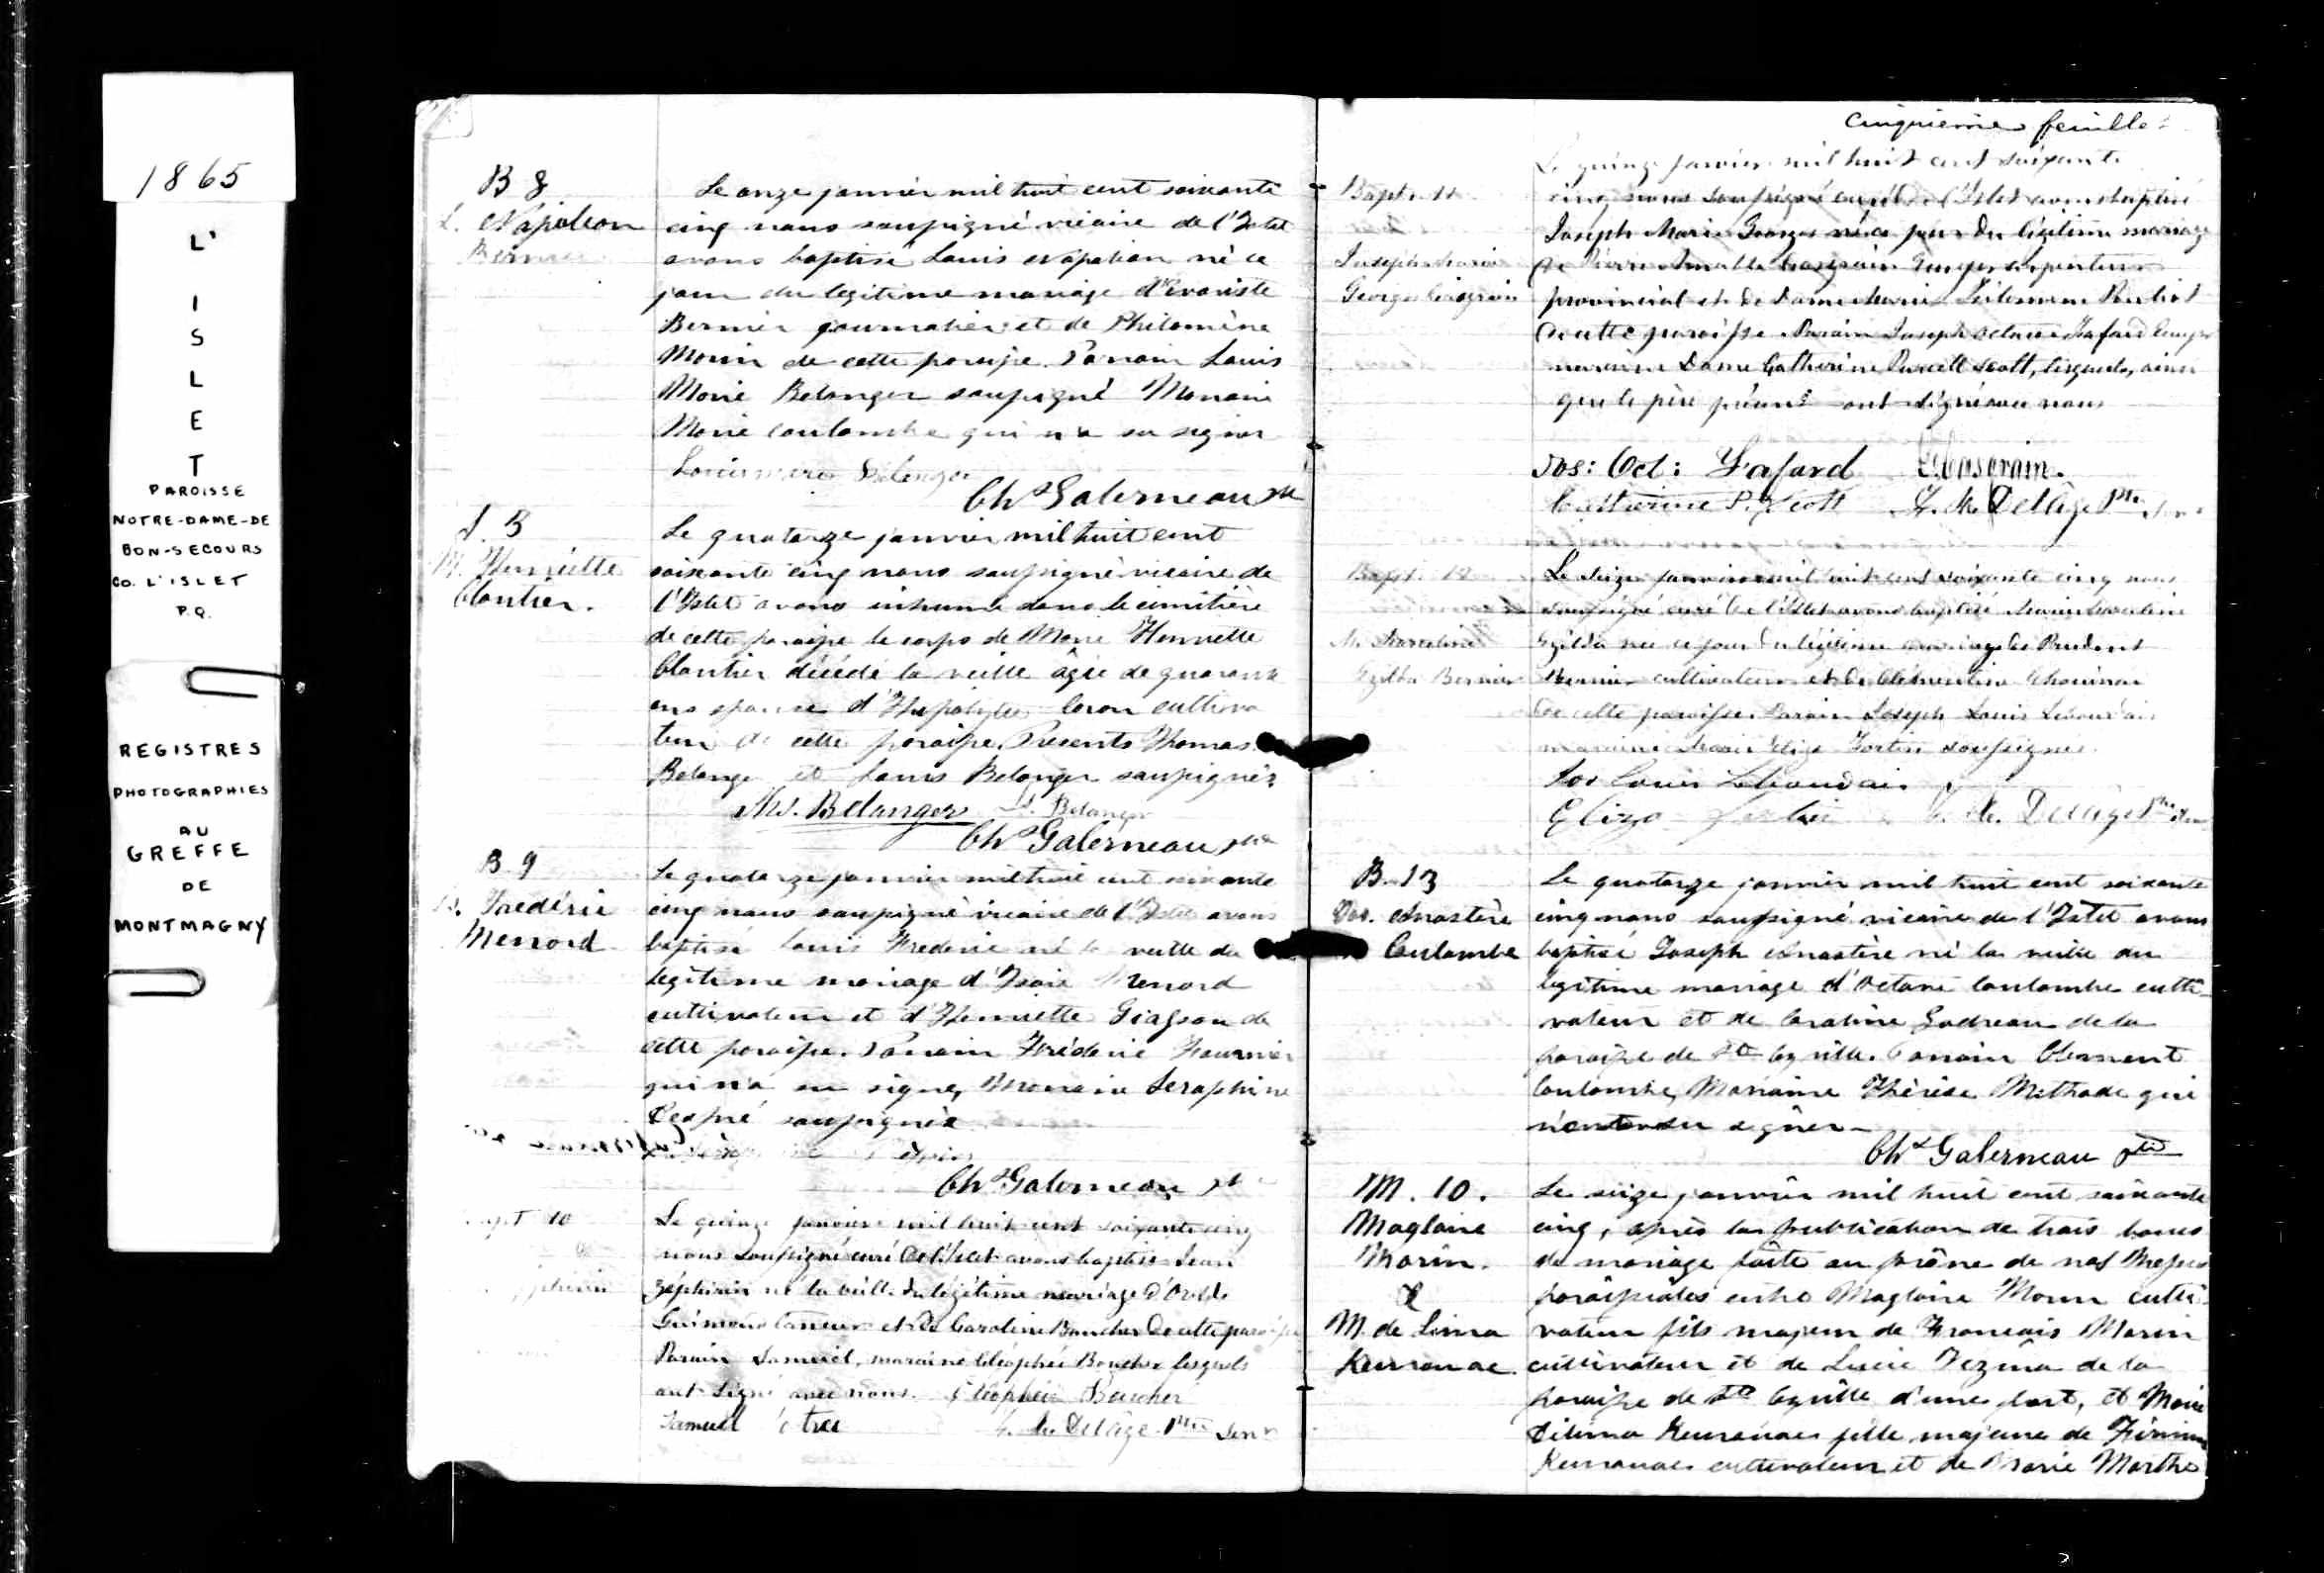 1865
L'
I
S
L
E
T
PAROISSE
NOTRE-DAME-DE
BON-SECOURS
CO. L'ISLET
P.Q.
REGISTRES
PHOTOGRAPHIES
AU
GREFFE
DE
MONTMAGNY
B 8
L. Napoleon
Bernier
Le onze janvier mil huit cent soixante
cinq nous soussigné vicaire de l'Islet
avons baptisé Louis Napoleon né ce
jour du legitime mariage d'Evariste
Bernier journalier et de Philomène
Morin de cette paroisse. Parrain Louis
Marie Belanger soussigné Marraine
Marie Coulombe qui n'a su signer
Belanger
Chs Galerneau ptre
S. 3
M. Henriette
Cloutier.
Le quatorze janvier mil huit cent
soixante cinq nous soussigné vicaire de
l'Islet avons inhumé dans le cimitière
de cette paroisse le corps de Marie Henriette
Cloutier décédé la veille âgée de quarante
ans épouse d'Hypolyte Caron cultiva
teur de cette paroisse. Presents Thomas
Belanger et Louis Belanger soussignés
Ths. Bélanger L. Belanger
Chs Galerneau ptre
B. 9
L. Frédéric
Menard
Le quatorze janvier mil huit cent soixante
cinq nous soussigné vicaire de l'Islet avons
baptisé Louis Frederic né la veille du
legitime mariage d'Isaie Menard
cultivateur et d'Henriette Giasson de
cette paroisse. Parrain Fréderic Fournier
qui n'a su signer, Marraine Seraphine
soussignée
Chs Galerneau ptre
10
Le quinze janvier mil huit cent soixante cinq
nous soussigné curé de l'Islet avons baptisé Jean
Zéphirin né la veille du légitime mariage d'Ovide
Guimond tanneur et de Caroline Boucher de cette paroisse
Parrain Samuel, marraine Cléophée Boucher lesquels
ont signé avec nous. Cléophée Boucher
Samuel
F. X. Delâge Ptre
Cinquieme feuille
Le quinze janvier mil huit cent soixante
Bapt. 11
Joseph Marie
Georges Casgrain
cinq nous soussigné curé de l'Islet avons baptisé
Joseph Marie Georges né ce jour du légitime mariage
de Pierre Casgrain Ecuyer arpenteur
provincial et de Dame Marie
de cette paroisse Parrain Joseph Octave Fafard Ecuyer
marraine Dame Catherine Purcell Scott, lesquels, ainsi
que le père présent ont signé avec nous
Jos: Oct: Fafard Casgrain.
Catherine P. Scott F. X. Delâge Ptre
Bapt. 12
M. Marceline
Ezilda Bernier
Le seize janvier mil huit cent soixante cinq nous
soussigné curé de l'Islet avons baptisé Marie Marceline
Ezilda née ce jour du légitime mariage de Prudent
Bernier cultivateur et de Clémentine Chouinard
de cette paroisse. Parrain Joseph Louis Lebourdais
marraine Marie Eliza Fortin soussignés.
Jos Louis Lebourdais
Eliza Fortin F. X. Delâge Ptre
B. 13
Jos. Anastère
Coulombe
Le quatorze janvier mil huit cent soixante
cinq nous soussigné vicaire de l'Islet avons
baptisé Joseph Anastère né la veille du
legitime mariage d'Octave Coulombe culti-
vateur et de Caroline Godreau de la
paroisse de St Cyrille. Parrain Clement
Coulombe, Marraine Thérèse Methode qui
n'ont su signer
Chs Galerneau ptre
M. 10.
Magloire
Morin.
&
M. de Lima
Keurouac
Le seize janvier mil huit cent soixante
cinq, après la publication de trois bancs
de mariage faite au prône de nos Messes
paroissiales entre Magloire Morin culti-
vateur fils majeur de Francois Morin
cultivateur et de Lucie Vezina de la
paroisse de St Cyrille d'une part, et Marie
Délima Keurouac fille majeure de Firmin
Keurouac cultivateur et de Marie Marthe